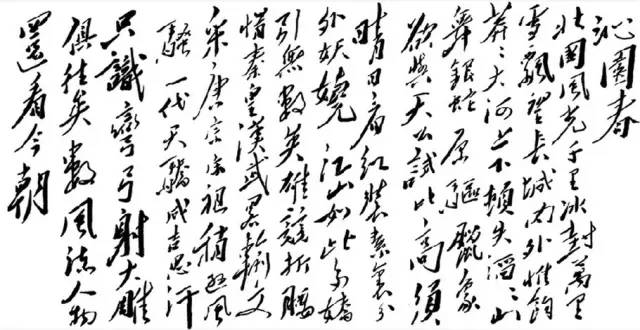 沁園春
北國風光千里冰封萬里
雪飄望長城内外惟餘
莽々大河上下頓失滔々山
舞銀蛇原驅臘象
欲與天公試比高須
晴日看紅裝素裹分
外妖嬈江山如此多嬌
引無數英雄競折腰
惜秦皇漢武略輸文
采唐宗宋祖稍遜風
騷一代天驕成吉思汗
只識彎弓射大雕
俱往矣數風流人物
還看今朝